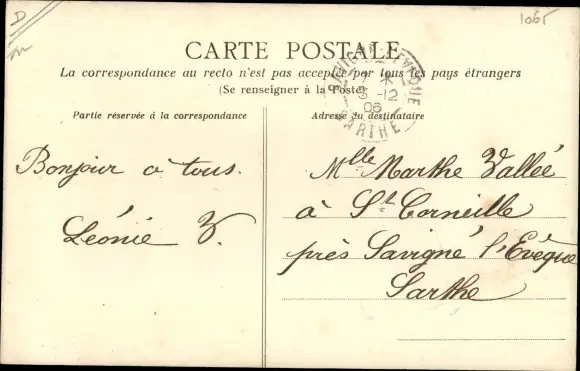 D
1065
CARTE POSTALE
La correspondance au recto n'est pas acceptée par tous les pays étrangers
(Se renseigner à la Poste)
SAVIGNÉ-L'EVÊQUE
* 
3-12
06
SARTHE
Partie réservée à la correspondance
Adresse du destinataire
Bonjour a tous.
Léonie V.
Mlle Marthe Vallée
à St Corneille
près Savigné l'Evêque
Sarthe